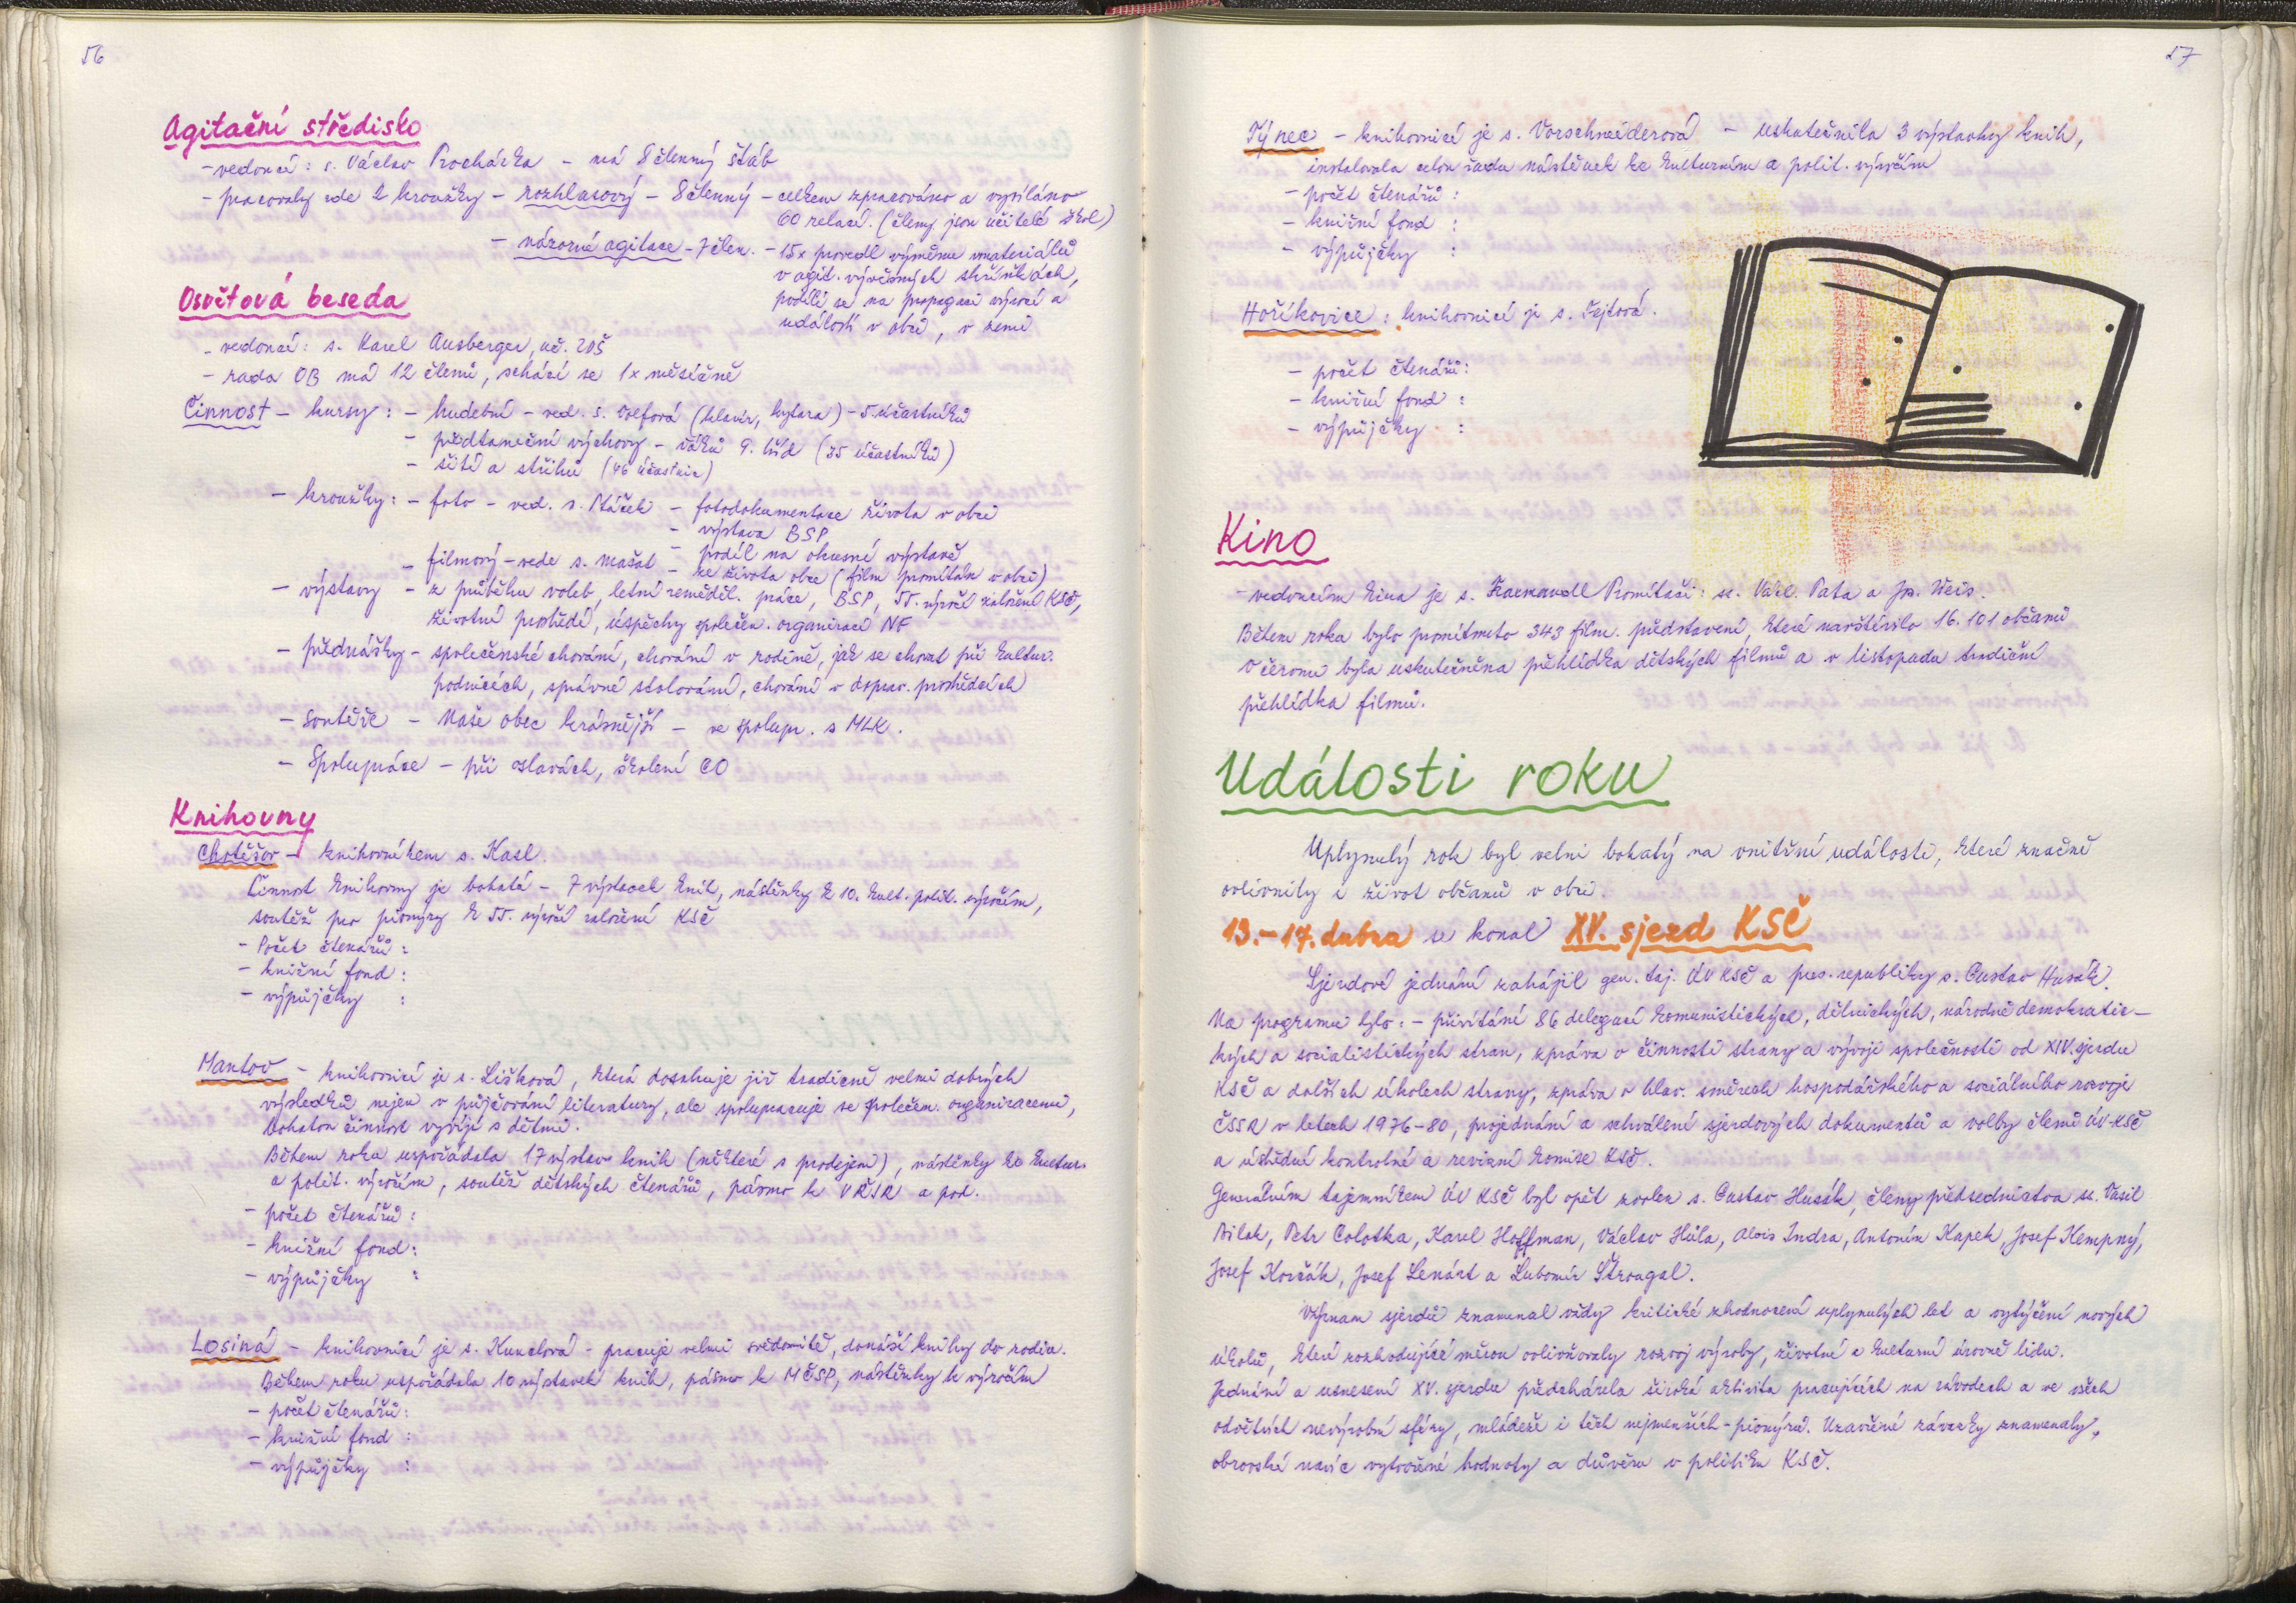 56
Agitační středisko
- vedoucí: s. Václav Procházka - má 8členný štáb
- pracovaly zde 2 kroužky - rozhlasový - 8členný - celkem zpracováno a vysíláno
60 relací. (členy jsou učitelé škol)
- názorné agitace - 7člen. - 15x provedl výměnu materiálů
v agit. vývěsných skříňkách,
podílí se na propagaci výročí a
událostí v obci, v zemi
Osvětová beseda
- vedoucí: s. Karel Ausberger, uč. ZDŠ
- rada OB má 12 členů, schází se 1x měsíčně
Činnost - kursy: - hudební - ved. s. (klavír, kytara) - 5 účastníků
- předtaneční výchovy - žáků 9. tříd (35 účastníků)
- šití a střihů (46 účastnic)
- kroužky: - foto - ved. s. Ptáček - fotodokumentace života v obci
- výstava BSP
- podíl na okresní výstavě
- filmový - vede s. Mašat - ze života obce (film promítán v obci)
- výstavy - z průběhu voleb, letní zeměděl. práce, BSP, 55. výročí založení KSČ,
životní prostředí, úspěchy společen. organizací NF
- přednášky - společenské chování, chování v rodině, jak se chovat při kultur.
podnicích, správné stolování, chování v doprav. prostředcích
- soutěže - Naše obec krásnější - ve spolupr. s MLK.
- Spolupráce - při oslavách, školení CO
Knihovny
Chotěšov - knihovníkem s. Kasl.
Činnost knihovny je bohatá - 7 výstavek knih, nástěnky k 10. kult. polit. výročím,
soutěž pro pionýry k 55. výročí založení KSČ
- Počet čtenářů :
- knižní fond :
- výpůjčky :
Mantov - knihovnicí je s. Lišková, která dosahuje již tradičně velmi dobrých
výsledků nejen v půjčování literatury, ale spolupracuje se společen. organizacemi,
bohatou činnost vyvíjí s dětmi.
Během roka uspořádala 17 výstav knih (některé s prodejem), nástěnky ke kultur.
a polit. výročím, soutěž dětských čtenářů, pásmo k VŘSR a pod.
- počet čtenářů :
- knižní fond :
- výpůjčky :
Losiná - knihovnicí je s. Kunclová - pracuje velmi svědomitě, donáší knihy do rodin.
Během roku uspořádala 10 výstavek knih, pásmo k MČSP, nástěnky k výročím
- počet čtenářů :
- knižní fond :
- výpůjčky :
57
Týnec - knihovnicí je s. Vorschneiderová - uskutečnila 3 výstavky knih,
instalovala celou řadu nástěnek ke kulturním a polit. výročím
- počet čtenářů :
- knižní fond :
- výpůjčky :
Hoříkovice : knihovnicí je s. Fajtová.
- počet čtenářů :
- knižní fond :
- výpůjčky :
Kino
- vedoucím kina je s. Promítači: ss. Václ. Pata a Jos. Weis.
Během roka bylo promítnuto 343 film. představení, které navštívilo 16.101 občanů
V červnu byla uskutečněna přehlídka dětských filmů a v listopadu tradiční
přehlídka filmů.
Události roku
Uplynulý rok byl velmi bohatý na vnitřní události, které značně
ovlivnily i život občanů v obci.
13.-17. dubna se konal XV. sjezd KSČ
Sjezdové jednání zahájil gen. taj. ÚV KSČ a pres. republiky s. Gustav Husák.
Na programu bylo: - přivítání 86 delegací komunistických, dělnických, národně demokratic-
kých a socialistických stran, zpráva o činnosti strany a vývoji společnosti od XIV. sjezdu
KSČ a dalších úkolech strany, zpráva o hlav. směrech hospodářského a sociálního rozvoje
ČSSR v letech 1976-80, projednání a schválení sjezdových dokumentů a volby členů ÚV-KSČ
a ústřední kontrolní a revizní komise KSČ.
Generálním tajemníkem ÚV KSČ byl opět zvolen s. Gustav Husák, členy předsednictva ss. Vasil
Bilak, Petr Colotka, Karel Hoffman, Václav Hůla, Alois Indra, Antonín Kapek, Josef Kempný,
Josef Korčák, Josef Lenárt a Lubomír Štrougal.
Význam sjezdů znamenal vždy kritické zhodnocení uplynulých let a vytýčení nových
úkolů, které rozhodující měrou ovlivňovaly rozvoj výroby, životní a kulturní úrovně lidu.
Jednání a usnesení XV. sjezdu předcházela široká aktivita pracujících na závodech a ve všech
odvětvích nevýrobní sféry, mládeže i těch nejmenších - pionýrů. Uzavřené závazky znamenaly
obrovské navíc vytvořené hodnoty a důvěru v politiku KSČ.